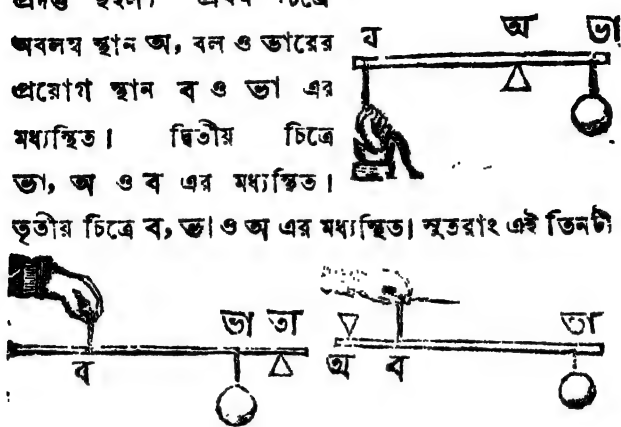 প্রদত্ত হইল। প্রথম চিত্রে
অবলম্ব স্থান অ, বল ও ভারের
প্রয়োগ স্থান ব ও ভা এর
মধ্যস্থিত। দ্বিতীয় চিত্রে
ভা, অ ও ব এর মধ্যস্থিত।
তৃতীয় চিত্রে ব, ভা ও অ এর মধ্যস্থিত। সুতরাং এই তিনটী
ব অ ভা
ভা তা
ব
ভা
অ ব